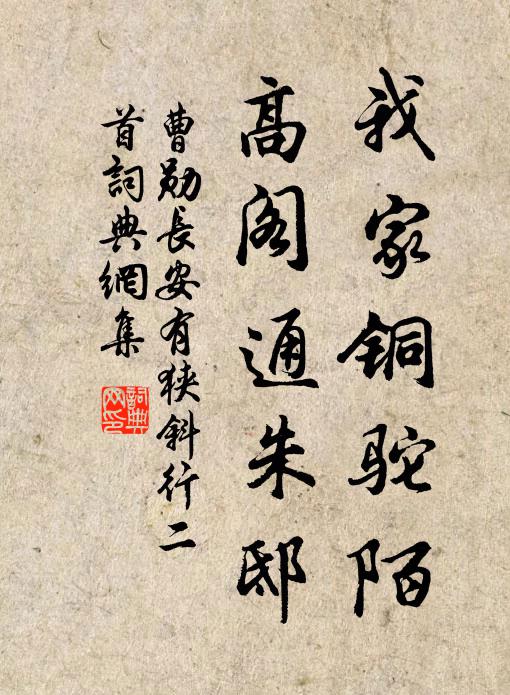 我家铜驼陌
高阁通朱邸
曹勋长安有狭斜行二
首词典网集
词典网印